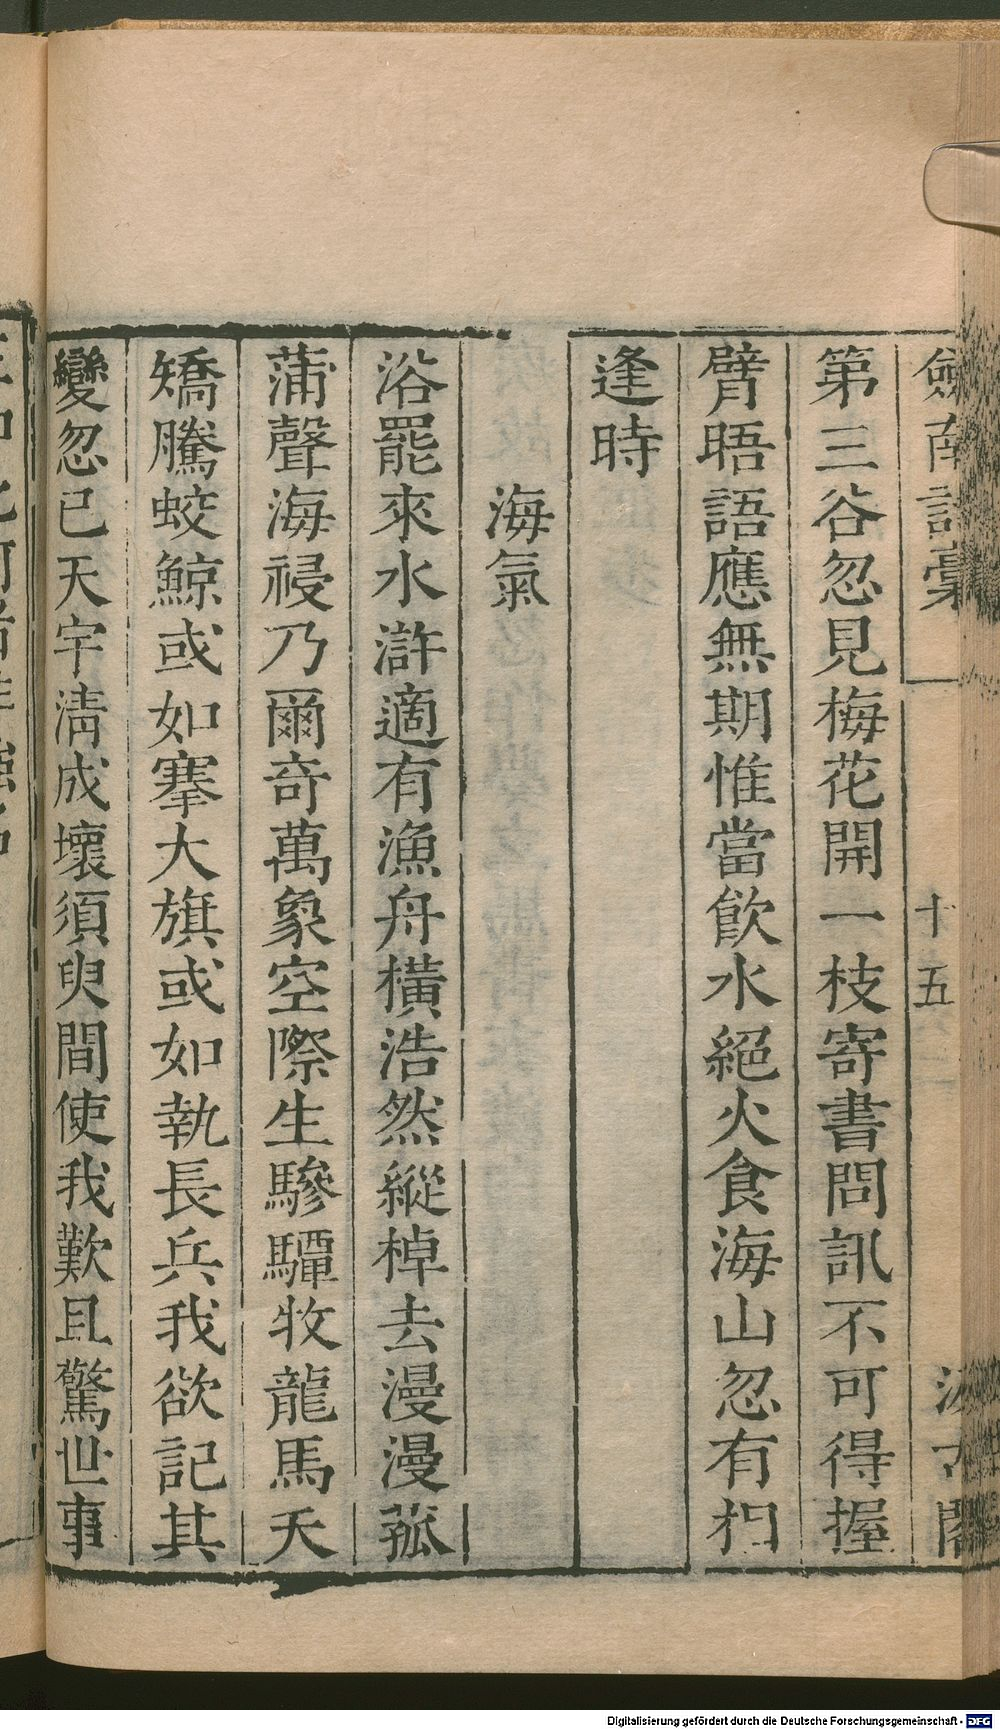 劍南詩稾
十五
汲古閣
第三谷忽見梅花開一枝寄書問訊不可得握
臂晤語應無期惟當飲水絕火食海山忽有相
逢時
海氣
浴罷來水滸適有漁舟橫浩然縱棹去漫漫菰
蒲聲海祲乃爾奇萬象空際生驂驔牧龍馬夭
矯騰蛟鯨或如搴大旗或如執長兵我欲記其
變忽已天宇淸成壞須臾間使我歎且驚世事
Digitalisierung gefördert durch die Deutsche Forschungsgemeinschaft - DFG